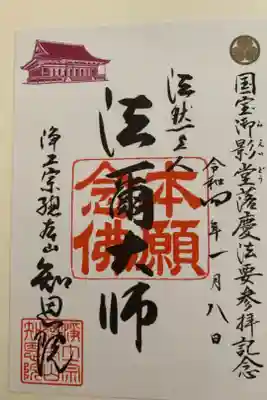 国宝御影堂落慶法要参拝記念
みえいどう
令和四年一月八日
法然上人
法爾大師
本願念佛
浄土宗總本山知恩院
浄土宗
知恩院